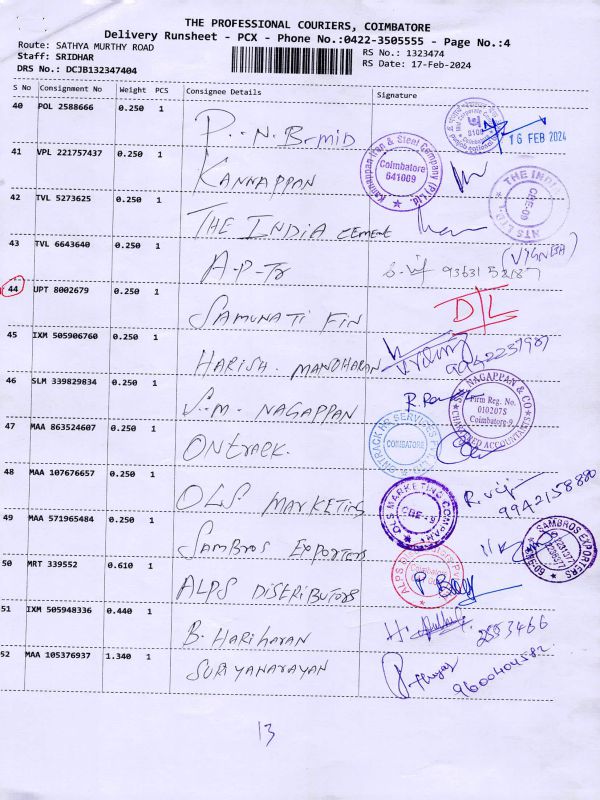 THE PROFESSIONAL COURIERS, COIMBATORE
Delivery Runsheet - PCX - Phone No.:0422-3505555 - Page No.:4
Route: SATHYA MURTHY ROAD
RS No.: 1323474
Staff: SRIDHAR
RS Date: 17-Feb-2024
DRS No.: DCJB132347404
S No Consignment No Weight PCS Consignee Details Signature
40 POL 2588666 0.250 1
16 FEB 2024
41 VPL 221757437 0.250 1 KANNAPPAN
Kannappan Iron & Steel Company (P) Ltd.
Coimbatore
641009
42 TVL 5273625 0.250 1 THE INDIA CEMENT
THE INDIA
CBE-09
NTS LTD.
43 TVL 6643640 0.250 1 A-P-Tr
44 UPT 8002679 0.250 1 SAMUNATI FIN
D/L
45 IXM 505906760 0.250 1 HARISH. MANOHARAN
9942237987
46 SLM 339829834 0.250 1 S.M. NAGAPPAN
NAGAPPAN & CO
Firm Reg. No.
010207S
Coimbatore-9
CHARTERED ACCOUNTANTS
47 MAA 863524607 0.250 1 ONtrack.
COIMBATORE
48 MAA 107676657 0.250 1 OLS MARKETING
OLS MARKETING COMPANY
CBE-9
9942158880
49 MAA 571965484 0.250 1 SAMBROS EXPORTERS
SAMBROS EXPORTERS
50 MRT 339552 0.610 1 ALPS DISTRIBUTORS
ALPS
51 IXM 505948336 0.440 1 B. Hariharan
2553466
52 MAA 105376937 1.340 1 SURYANARAYAN
9600404582
13